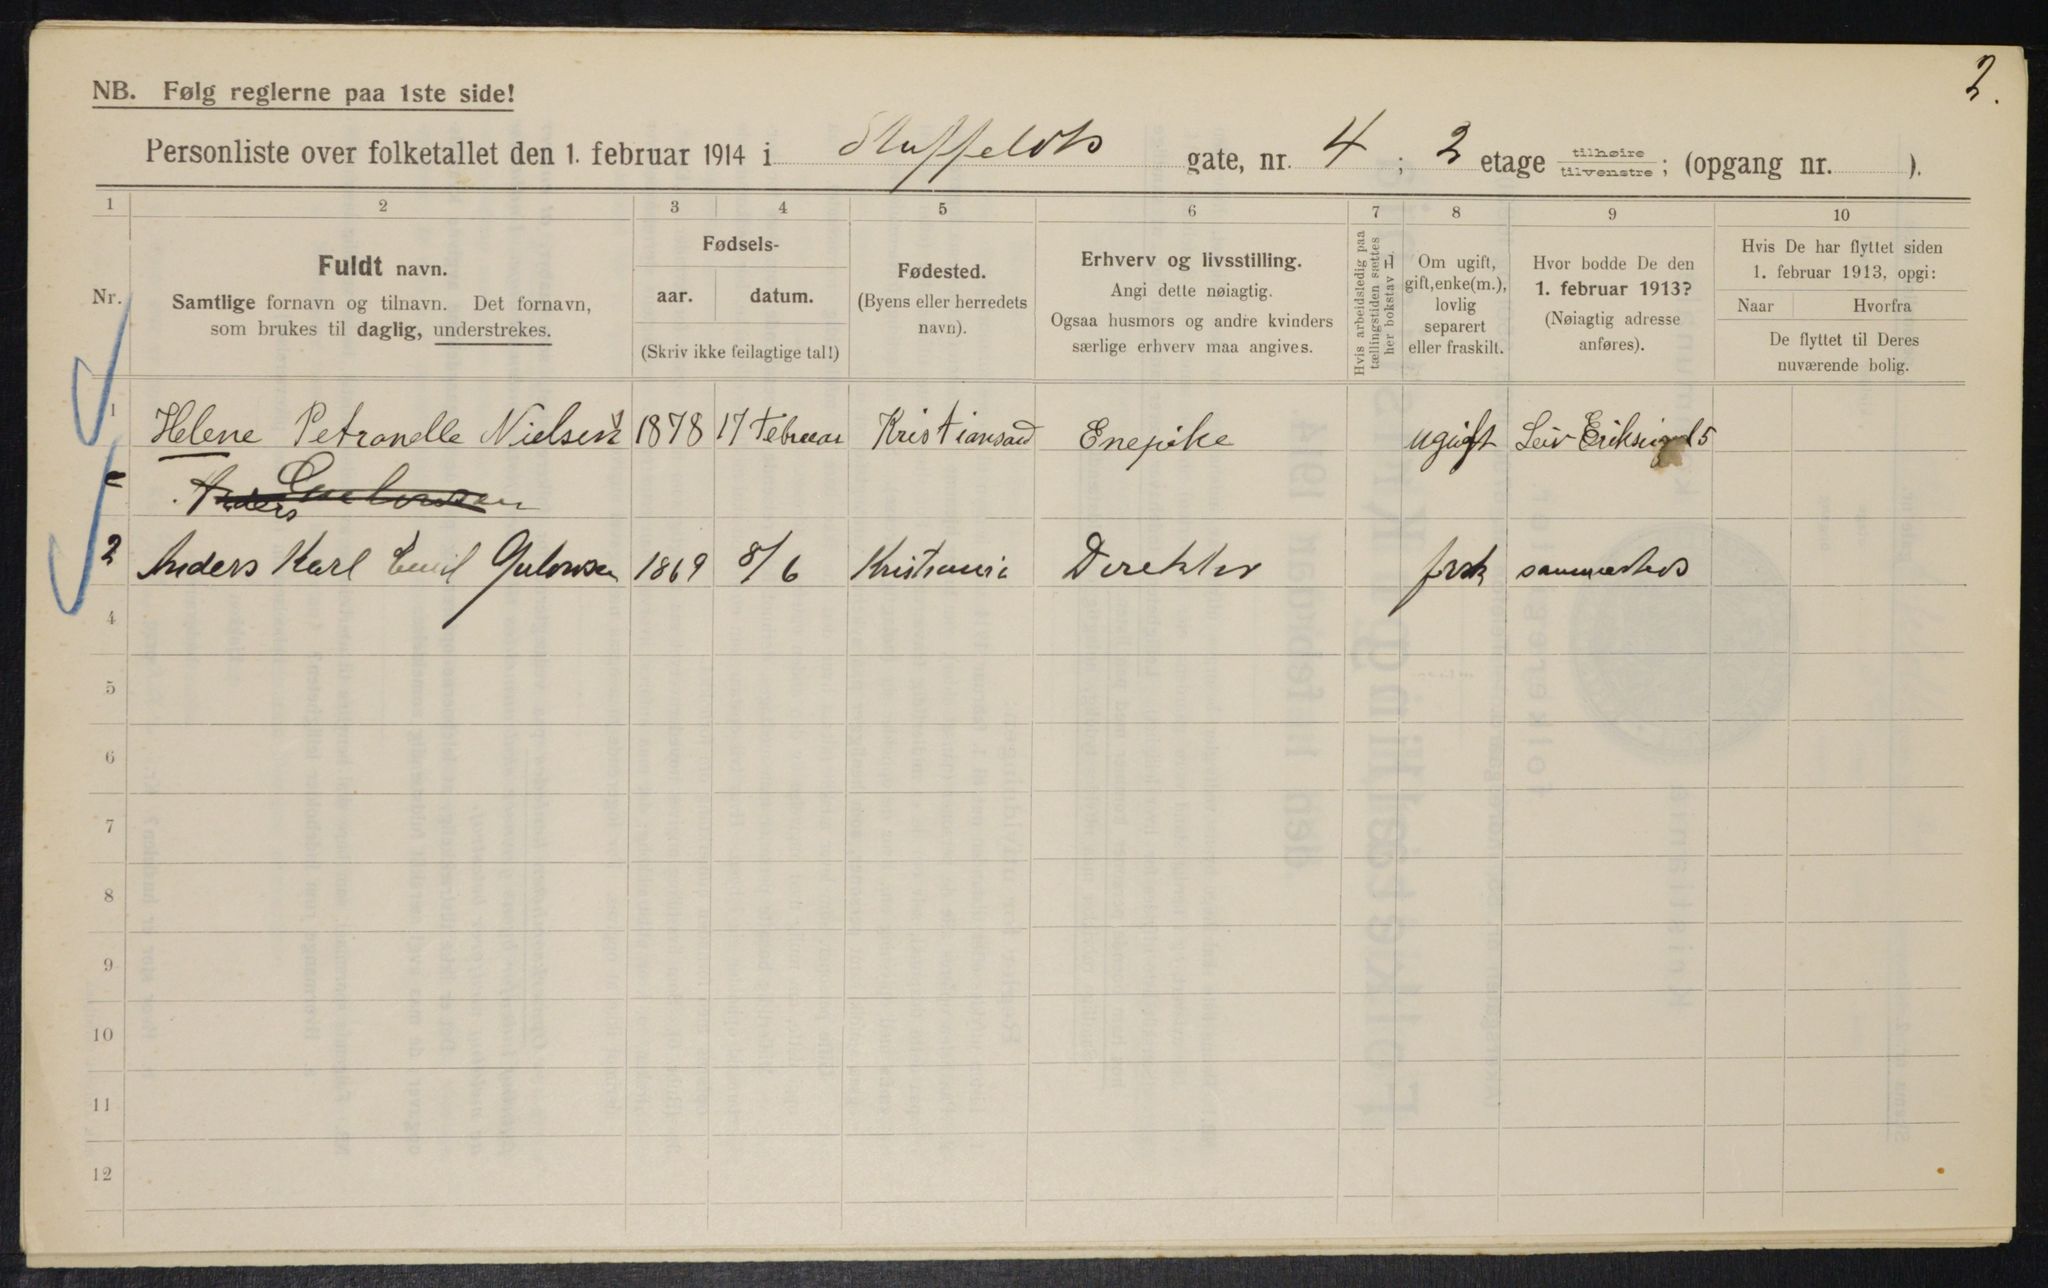 2.
NB. Følg reglerne paa 1ste side!
Personliste over folketallet den 1. februar 1914 i Stuffeldts gate, nr. 4 ; 2 etage tilhøire tilvenstre ; (opgang nr. ).
1 2 3 4 5 6 7 8 9 10
Nr.
Fuldt navn.
Samtlige fornavn og tilnavn. Det fornavn,
som brukes til daglig, understrekes.
Fødsels-
aar. datum.
(Skriv ikke feilagtige tal!)
Fødested.
(Byens eller herredets
navn).
Erhverv og livsstilling.
Angi dette nøiagtig.
Ogsaa husmors og andre kvinders
særlige erhverv maa angives.
Hvis arbeidsledig paa
tællingstiden sættes
her bokstav L
Om ugift,
gift, enke(m.),
lovlig
separert
eller fraskilt.
Hvor bodde De den
1. februar 1913?
(Nøiagtig adresse
anføres).
Hvis De har flyttet siden
1. februar 1913, opgi:
Naar Hvorfra
De flyttet til Deres
nuværende bolig.
1 Helene Petronelle Nielsen 1878 17 Februar Kristiansand Enepike ugift Leiv Eriksensgd 5
Anders
2 Anders Karl Emil Gulowsen 1869 8/6 Kristiania Direktør frsk sammesteds
4
5
6
7
8
9
10
11
12